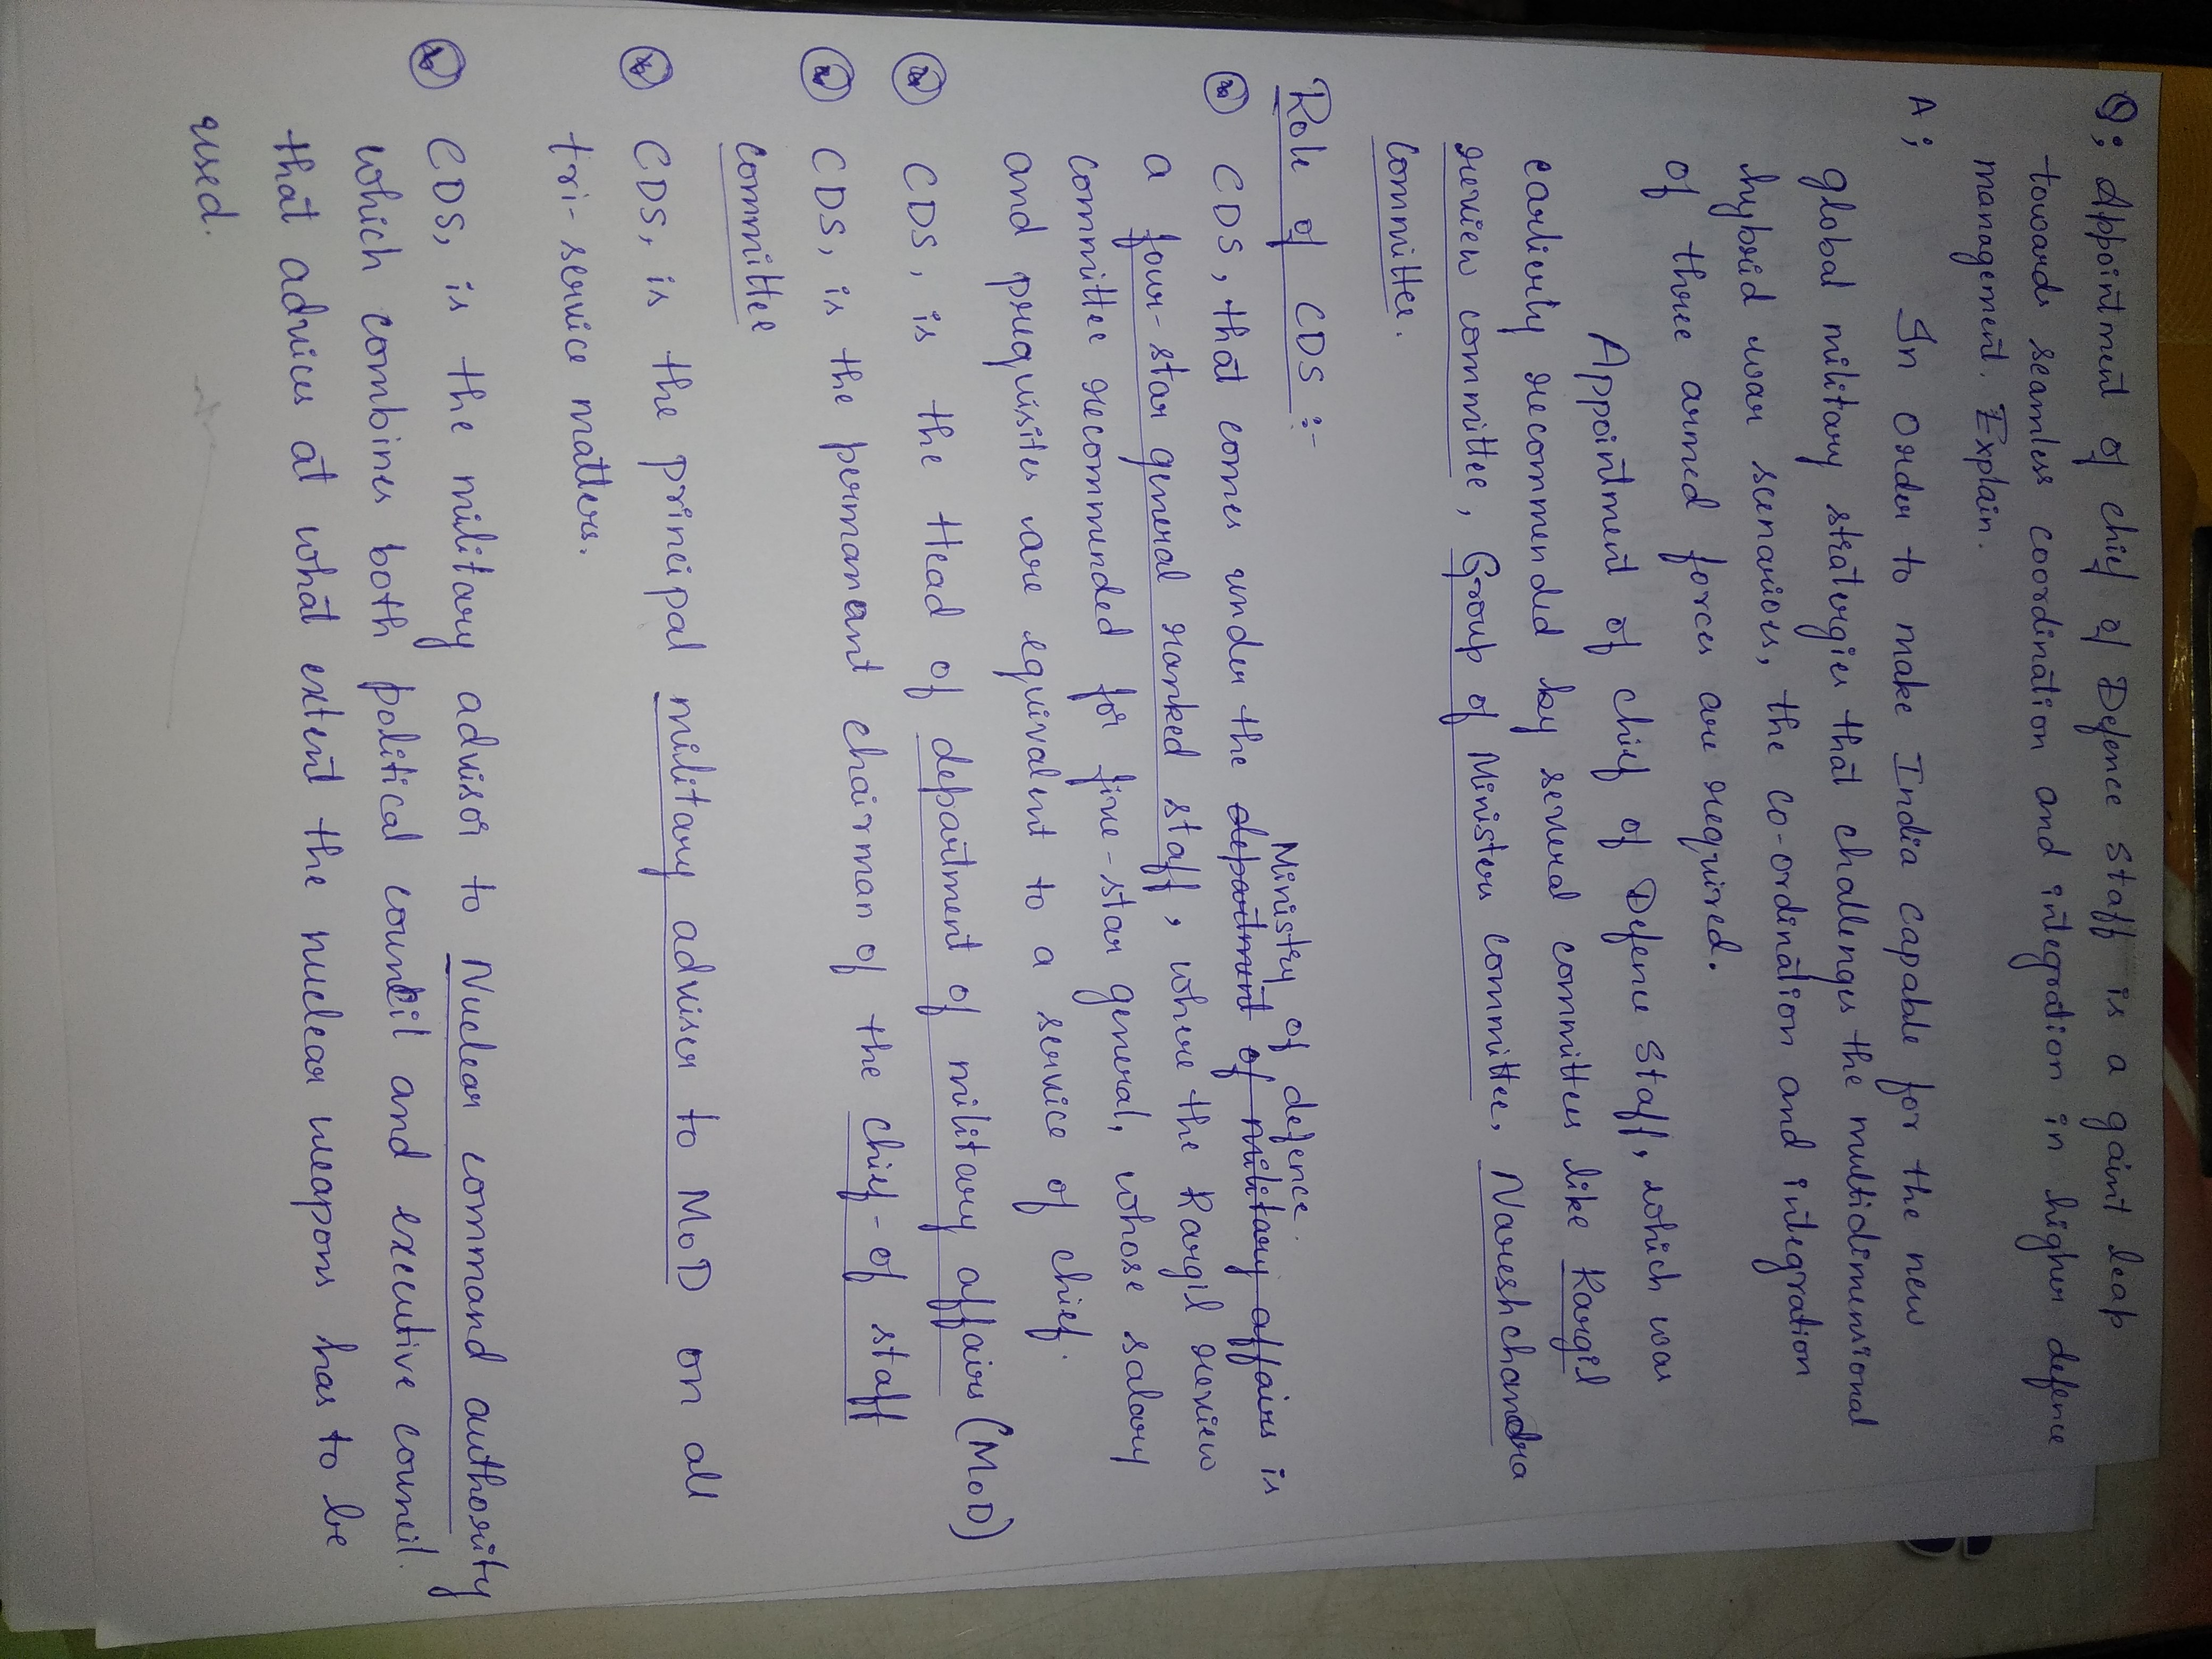 Q; Appointment of chief of Defence Staff is a gaint leap
towards seamless coordination and integration in higher defence
management. Explain.
A; In order to make India capable for the new
global military stratergies that challenges the multidimensional
hybrid war scenarious, the co-ordination and integration
of three armed forces are required.
Appointment of chief of Defence Staff, which was
earlierly recommended by several committees like Kargil
review committee, Group of Ministers committee, Nareshchandra
committee.
Role of CDS :-
CDS, that comes under the department of military affairs is
Ministry of defence
a four-star general ranked staff, where the Kargil review
committee recommended for five-star general, whose salary
and prequisites are equivalent to a service of chief.
CDS, is the Head of department of military affairs (MoD)
CDS, is the permanent chairman of the chief-of staff
committee
CDS, is the principal military adviser to MoD on all
tri-service matters.
CDS, is the military advisor to Nuclear command authority
which combines both political council and executive council.
that advices at what extent the nuclear weapons has to be
used.